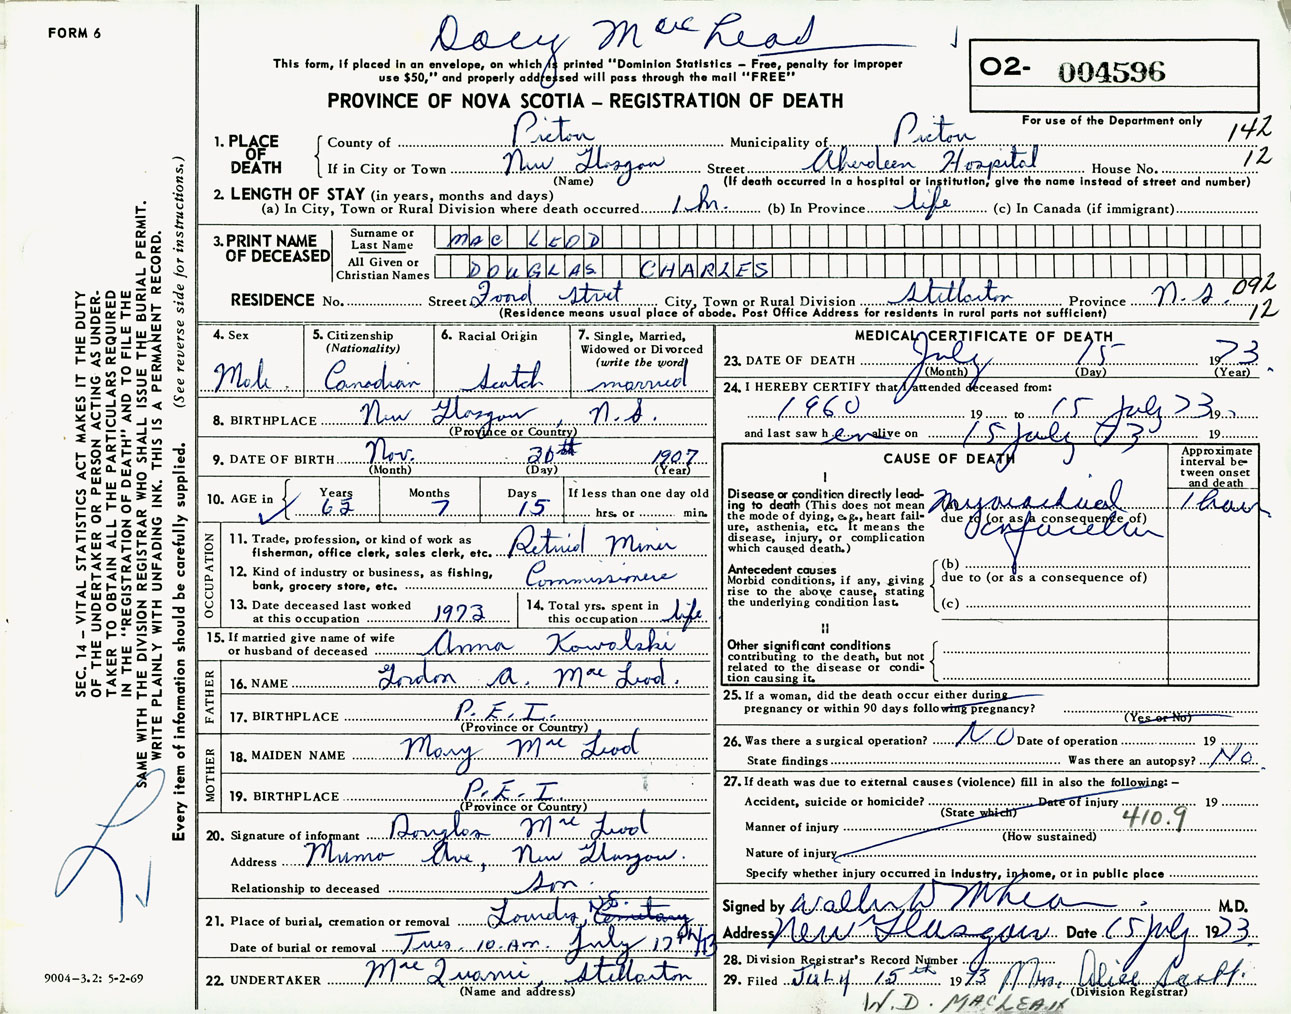 FORM 6
Docy MacLeod
This form, if placed in an envelope, on which is printed "Dominion Statistics – Free, penalty for improper
use $50," and properly addressed will pass through the mail "FREE"
O2- 004596
For use of the Department only
PROVINCE OF NOVA SCOTIA – REGISTRATION OF DEATH
142
12
1. PLACE OF DEATH
County of Pictou Municipality of Pictou
If in City or Town New Glasgow Street Aberdeen Hospital House No.
(Name) (If death occurred in a hospital or institution, give the name instead of street and number)
2. LENGTH OF STAY (in years, months and days)
(a) In City, Town or Rural Division where death occurred 1 hr. (b) In Province life (c) In Canada (if immigrant)
3. PRINT NAME OF DECEASED
Surname or Last Name MAC LEOD
All Given or Christian Names DOUGLAS CHARLES
RESIDENCE No. Street Foord Street City, Town or Rural Division Stellarton Province N.S.
(Residence means usual place of abode. Post Office Address for residents in rural parts not sufficient)
092
12
4. Sex Male
5. Citizenship (Nationality) Canadian
6. Racial Origin Scotch
7. Single, Married, Widowed or Divorced (write the word) married
8. BIRTHPLACE New Glasgow, N.S.
(Province or Country)
9. DATE OF BIRTH Nov. 30th 1907
(Month) (Day) (Year)
10. AGE in Years 65 Months 7 Days 15 If less than one day old hrs. or min.
OCCUPATION
11. Trade, profession, or kind of work as fisherman, office clerk, sales clerk, etc. Retired Miner
12. Kind of industry or business, as fishing, bank, grocery store, etc. Commissionere
13. Date deceased last worked at this occupation 1973
14. Total yrs. spent in this occupation life
15. If married give name of wife or husband of deceased Anna Kowalski
FATHER
16. NAME Gordon A. MacLeod.
17. BIRTHPLACE P.E.I.
(Province or Country)
MOTHER
18. MAIDEN NAME Mary MacLeod
19. BIRTHPLACE P.E.I.
(Province or Country)
20. Signature of informant Douglas MacLeod
Address Munro Ave, New Glasgow.
Relationship to deceased Son.
21. Place of burial, cremation or removal Lourdes, N.S. Cemetary
Date of burial or removal Tues. 10 A.M. July 17th/73
22. UNDERTAKER MacQuarrie, Stellarton
(Name and address)
MEDICAL CERTIFICATE OF DEATH
23. DATE OF DEATH July 15 1973
(Month) (Day) (Year)
24. I HEREBY CERTIFY that I attended deceased from:
1960 19 to 15 July 73 19
and last saw h alive on 15 July 73 19
CAUSE OF DEATH
Approximate interval between onset and death
I
Disease or condition directly leading to death (This does not mean the mode of dying, e.g., heart failure, asthenia, etc. it means the disease, injury, or complication which caused death.)
(a) myocardial infarction 1 hour
due to (or as a consequence of)
Antecedent causes
Morbid conditions, if any, giving rise to the above cause, stating the underlying condition last.
(b)
due to (or as a consequence of)
(c)
II
Other significant conditions
contributing to the death, but not related to the disease or condition causing it.
25. If a woman, did the death occur either during
pregnancy or within 90 days following pregnancy?
(Yes or No)
26. Was there a surgical operation? NO Date of operation 19
State findings Was there an autopsy? No.
27. If death was due to external causes (violence) fill in also the following: –
Accident, suicide or homicide? Date of injury 19
(State which)
410.9
Manner of injury
(How sustained)
Nature of injury
Specify whether injury occurred in Industry, in home, or in public place
Signed by Walter D McLean M.D.
Address New Glasgow Date 15 July 1973
28. Division Registrar's Record Number
29. Filed July 15th 1973 Mrs. Alice Scott.
(Division Registrar)
W. D. MACLEAN
9004–3.2: 5-2-69
SEC. 14 – VITAL STATISTICS ACT MAKES IT THE DUTY
OF THE UNDERTAKER OR PERSON ACTING AS UNDER-
TAKER TO OBTAIN ALL THE PARTICULARS REQUIRED
IN THE "REGISTRATION OF DEATH" AND TO FILE THE
SAME WITH THE DIVISION REGISTRAR WHO SHALL ISSUE THE BURIAL PERMIT.
WRITE PLAINLY WITH UNFADING INK. THIS IS A PERMANENT RECORD.
Every item of information should be carefully supplied. (See reverse side for instructions.)